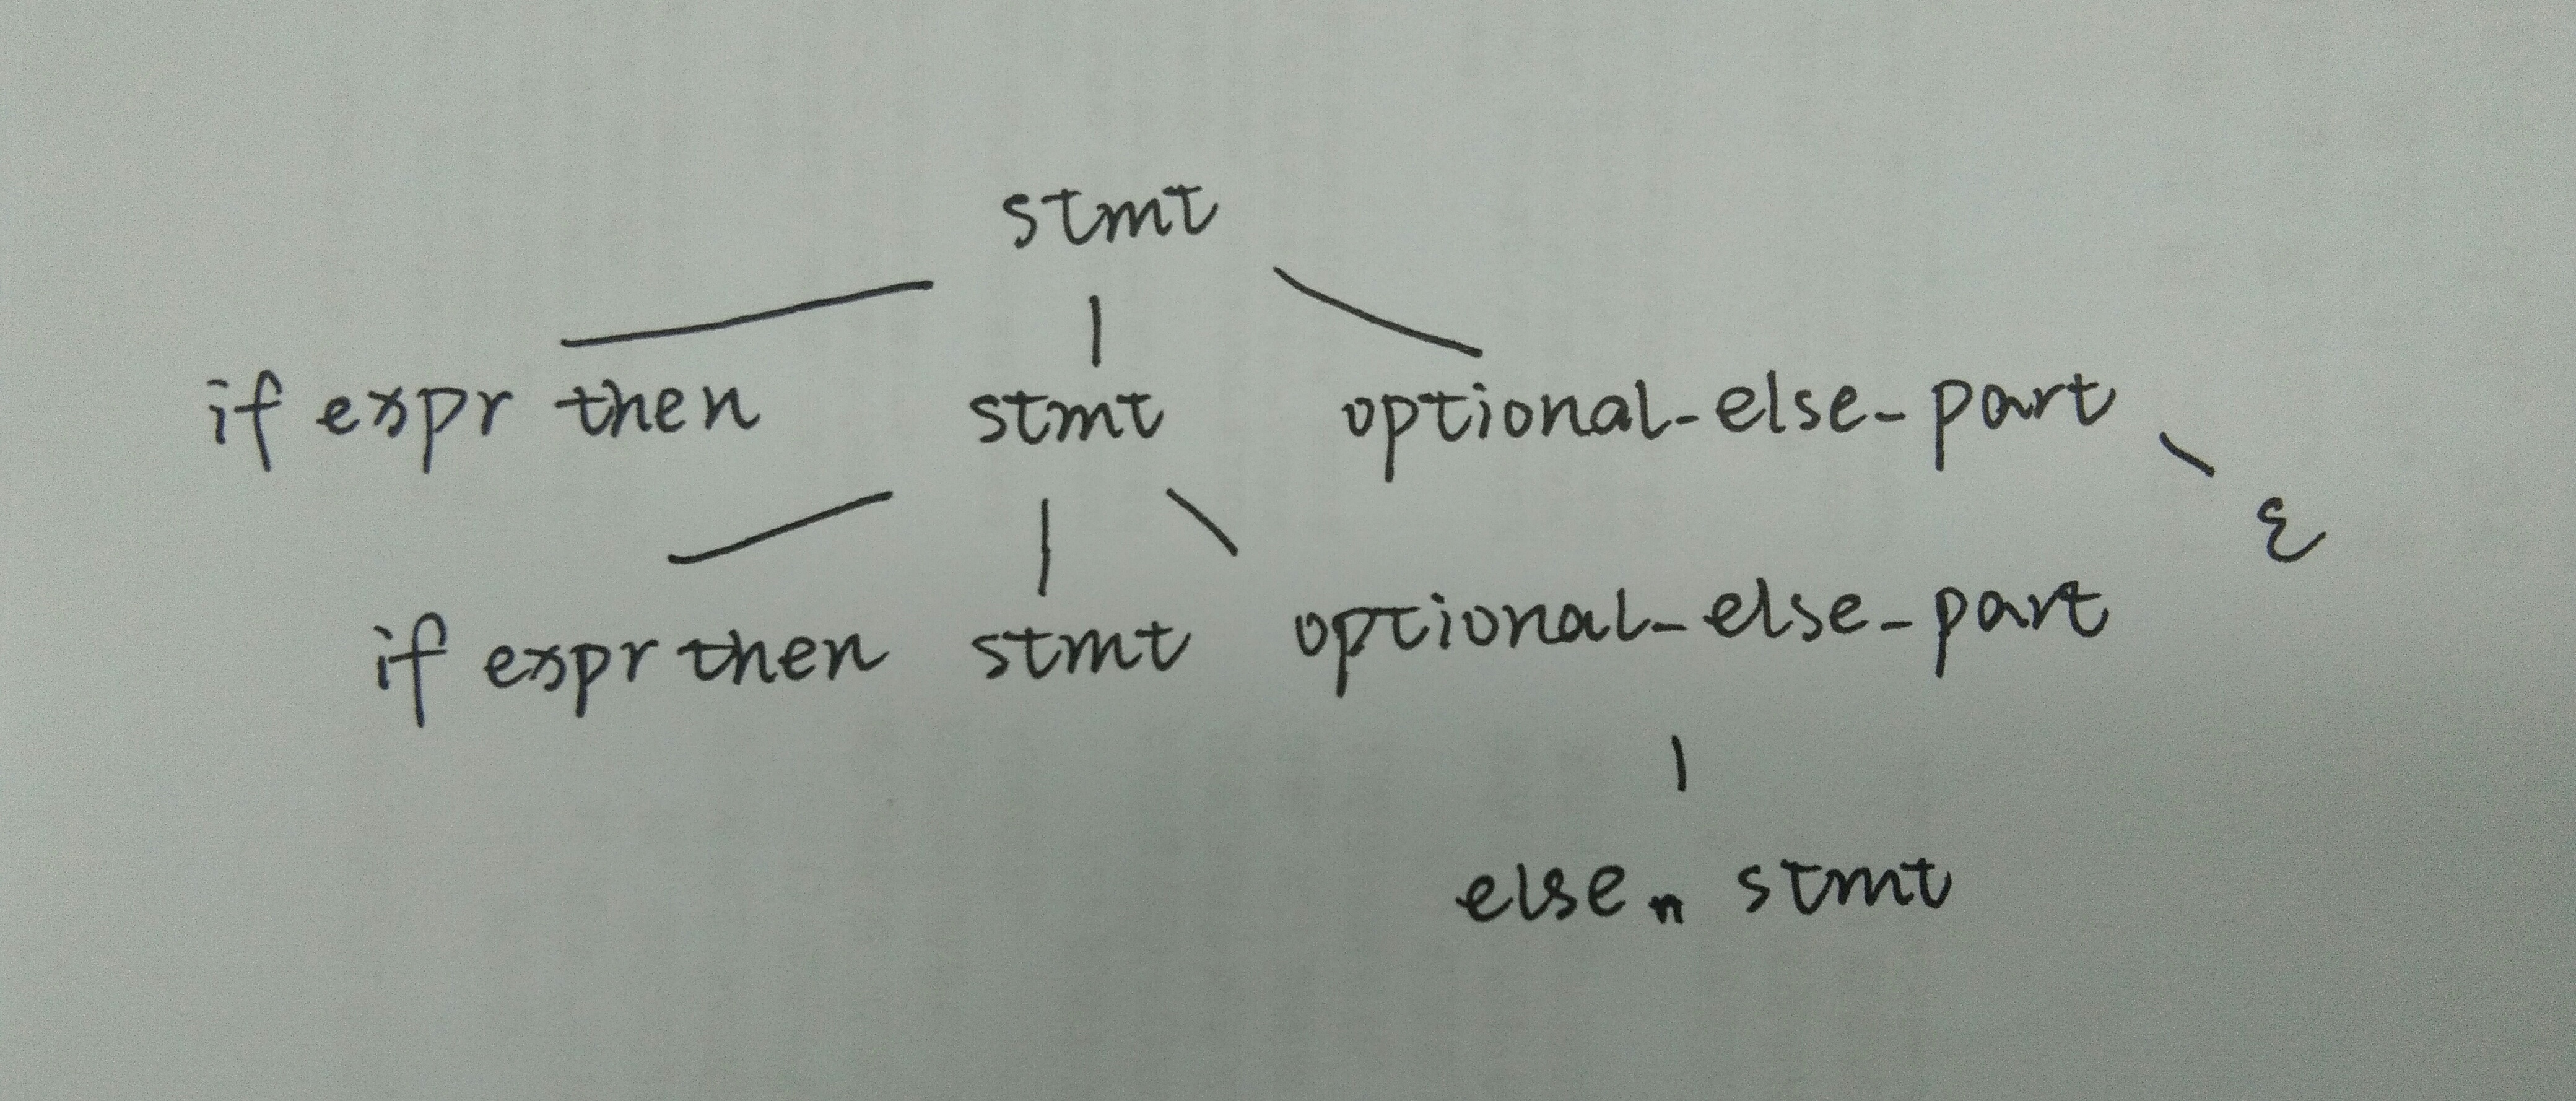 stmt
if expr then stmt optional_else_part
ε
if expr then stmt optional_else_part
else stmt